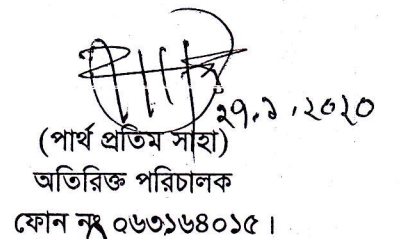 ২৭.১.২০২০
(পার্থ প্রতিম সাহা)
অতিরিক্ত পরিচালক
ফোন নং ০৬৩১৬৪০১৫।